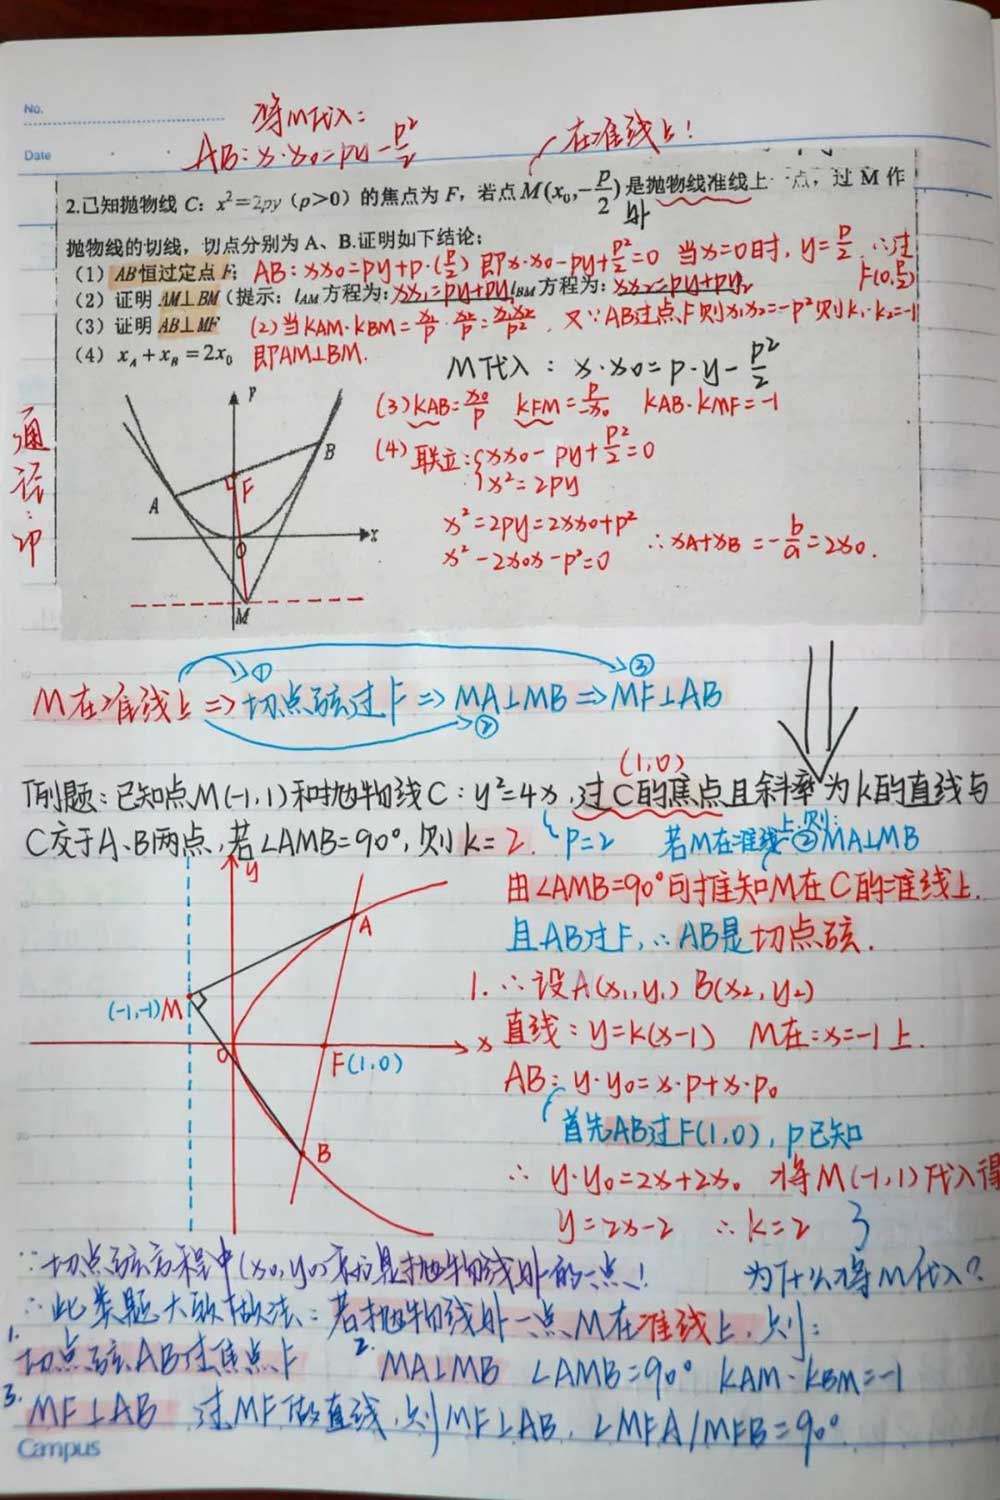 No.
Date
将M代入:
AB: x·x₀=py-p²/2
在准线上!
2.已知抛物线 C: x²=2py (p>0) 的焦点为 F, 若点 M(x₀,-p/2) 是抛物线准线上一点, 过 M 作
外
抛物线的切线, 切点分别为 A、B.证明如下结论:
(1) AB恒过定点 F; AB: xx₀=py+p·(p/2) 即x·x₀-py+p²/2=0 当x=0时, y=p/2 ∴过F(0,p/2)
(2) 证明 AM⊥BM (提示: l_AM 方程为: xx₁=py+py₁ l_BM 方程为: xx₂=py+py₂
(3) 证明 AB⊥MF (2)当KAM·KBM=x₁/p·x₂/p=x₁x₂/p², 又∵AB过点F则x₁x₂=-p²则k₁·k₂=-1
(4) x_A+x_B=2x₀ 即AM⊥BM.
M代入: x·x₀=p·y-p²/2
(3)KAB=x₀/p KFM=p/-x₀ KAB·KMF=-1
(4)联立:{xx₀-py+p²/2=0
x²=2py
x²=2py=2xx₀+p²
x²-2x₀x-p²=0 ∴xA+xB=-b/a=2x₀.
通径:2p
P
A
B
F
x
O
M
① ③
M在准线上⇒切点弦过F⇒MA⊥MB⇒MF⊥AB
②
(1,0)
例题:已知点M(-1,1)和抛物线C:y²=4x,过C的焦点且斜率为k的直线与
C交于A、B两点,若∠AMB=90°,则k=2. p=2 若M在准线上,则②MA⊥MB
由∠AMB=90°可推知M在C的准线上.
且AB过F,∴AB是切点弦.
1.∴设A(x₁,y₁) B(x₂,y₂)
直线:y=k(x-1) M在:x=-1上.
AB: y·y₀=x·p+x·p₀
首先AB过F(1,0),p已知
∴y·y₀=2x+2x₀ 将M(-1,1)代入得
y=2x-2 ∴k=2
y
A
(-1,-1)M
O
x
F(1,0)
B
∵切点弦方程中(x₀,y₀)表示是抛物线外的一点! 为什么将M代入?
∴此类题大致做法:若抛物线外一点M在准线上,则:
1.切点弦AB过焦点F 2.MA⊥MB ∠AMB=90° KAM·KBM=-1
3.MF⊥AB 过MF做直线,则MF⊥AB,∠MFA/MFB=90°.
Campus